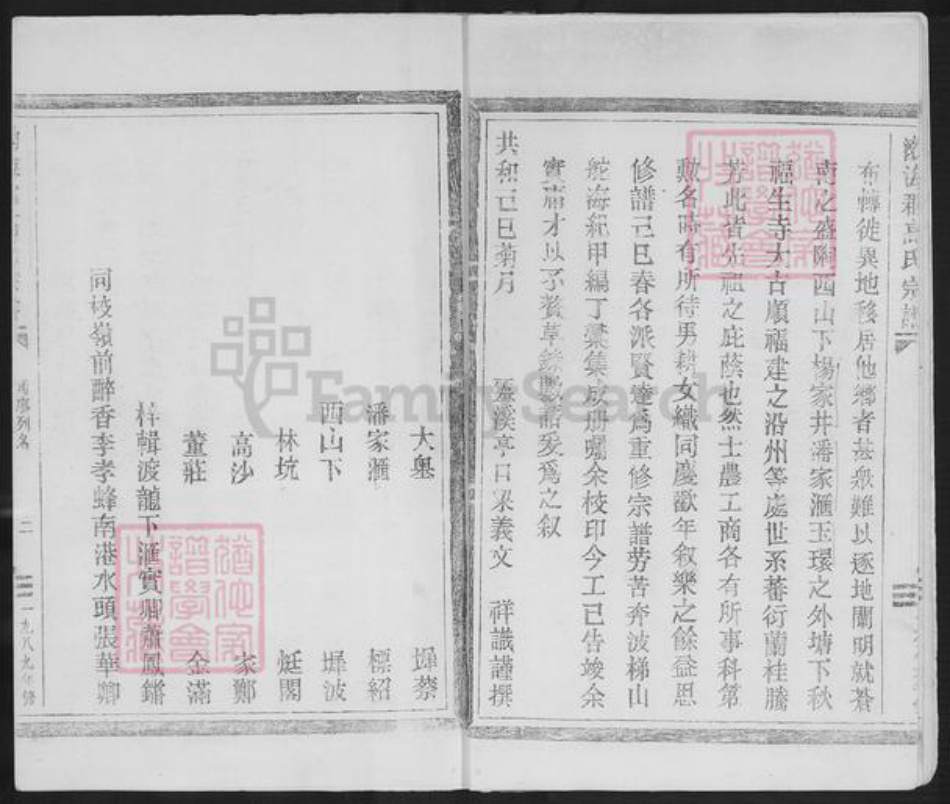 渤海郡高氏宗譜
布轉徙異地移居他鄉者甚衆難以逐地闡明就蒼
南之盛陶西山下楊家井潘家滙玉環之外塘下秋
福生寺大古順福建之沿州等處世系蕃衍蘭桂騰
芳此皆始祖之庇蔭也然士農工商各有所事科第
勲名時有所待男耕女織同慶歡年叙樂之餘益思
修譜己巳春各派賢達爲重修宗譜劳苦奔波梯山
航海紀甲編丁彙集成册囑余校印今工已告竣余
實庸才以不贅草數語爰爲之叙
共和己巳菊月 溪亭口 義文 祥議謹撰
大 
潘家滙 標紹
西山下 波
林坑 蜓閣
高沙 家鄭
董莊 金滿
梓輯渡龍下滙實卿蕭鳳鏘
同校嶺前醉香李孝蜂南港水頭張華卿
列名
二
一九八九年修
FamilySearch